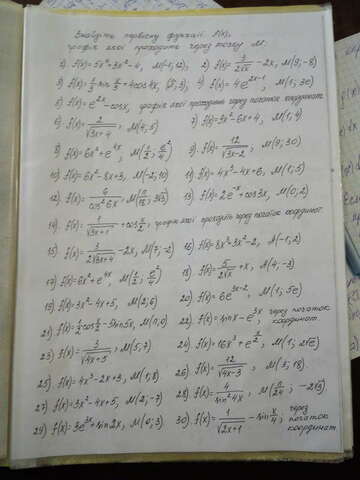 Знайдіть первісну функції f(x),
графік якої проходить через точку M.
1) f(x)=5x⁴+3x²-4, M(-1;12),  2) f(x)=3/√(2x) - 2x, M(9;-8)
3) f(x)=1/3 sin x/3 + 4cos4x, 4) f(x)=4e^(2x-1), M(1; 3e)
5) f(x)=e^(2x)-cosx, графік якої проходить через початок координат
6) f(x)=2/√(3x+4); M(4;5)  7) f(x)=3x²-6x+4, M(1;4)
8) f(x)=6x²+e^(4x), M(1/2; e²/4)  9) f(x)=12/√(3x-2); M(9;30)
10) f(x)=6x²-8x+3, M(-2;10)  11) f(x)=4x³-4x+6, M(1;5)
12) f(x)=6/cos²6x, M(π/18; 3√3)  13) f(x)=2e^(-x)+cos3x, M(0;2)
14) f(x)=1/√(3x+1)+cos x/2; графік якої проходить через початок координат.
15) f(x)=3/(2√(3x+4)) - 2x, M(7;-2)  16) f(x)=8x³-3x²-2, A(-1;2)
17) f(x)=6x²+e^(4x), M(1/2; e²/4)  18) f(x)=5/(2√x)+x, A(4;-3)
19) f(x)=3x²-4x+5, M(2;6)  20) f(x)=6e^(3x-2), M(1;5e)
21) f(x)=1/2 cos x/2 - 5sin5x, M(π;0)  22) f(x)=sinx-e^(3x) через початок координат
23) f(x)=3/√(4x+5); M(5;7)  24) f(x)=16x³+e^(x/2), M(1;2√e)
25) f(x)=4x³-2x+3, M(1;8)  26) f(x)=12/√(4x-3), M(3;18)
27) f(x)=3x²-4x+5, M(2;-7)  28) f(x)=4/sin²4x, M(π/24; -2√3)
29) f(x)=3e^(3x)+sin2x, M(0;3)  30) f(x)=1/√(2x+1) - sin x/4, через початок координат